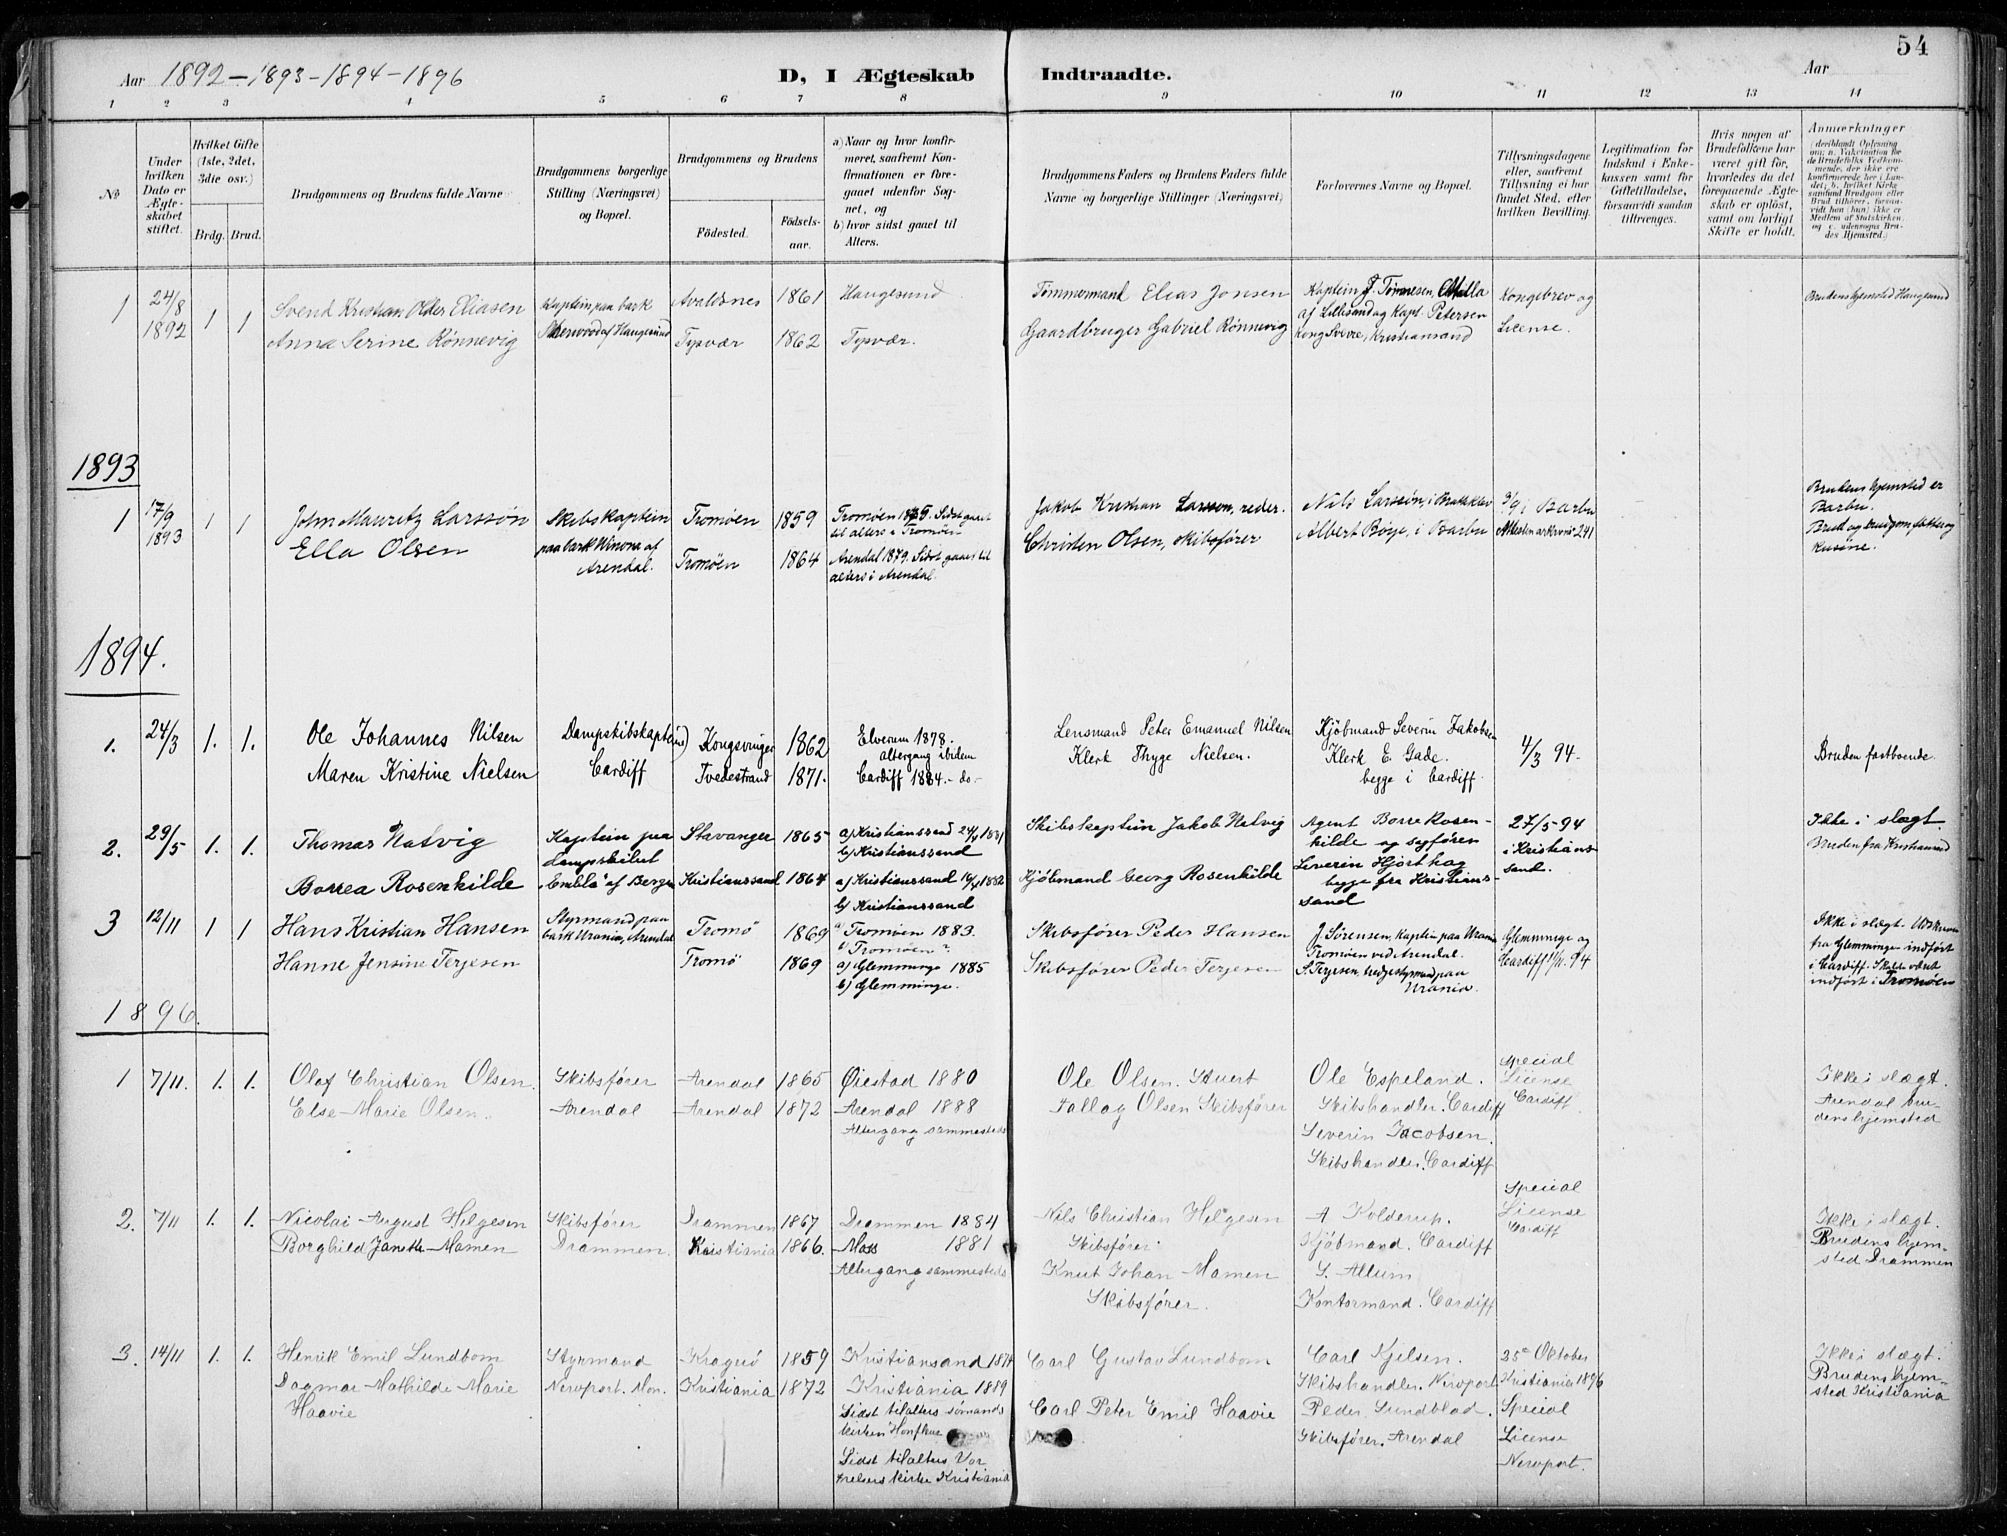 54
Aar 1892-1893-1894-1896
D, I Ægteskab Indtraadte.
Aar
1 2 3 4 5 6 7 8 9 10 11 12 13 14
No
Under hvilken Dato er Ægteskabet stiftet.
Hvilket Gifte (1ste, 2det, 3die osv.)
Brdg. Brud.
Brudgommens og Brudens fulde Navne
Brudgommens borgerlige Stilling (Næringsvei) og Bopæl.
Brudgommens og Brudens
Fødested. Fødselsaar.
a) Naar og hvor konfirmeret, saafremt Konfirmationen er foregaaet udenfor Sognet, og
b) hvor sidst gaaet til Alters.
Brudgommens Faders og Brudens Faders fulde Navne og borgerlige Stillinger (Næringsvei)
Forlovernes Navne og Bopæl.
Tillysningsdagene eller, saafremt Tillysning ei har fundet Sted, efter hvilken Bevilling.
Legitimation for Indskud i Enkekassen samt for Giftetilladelse, forsaavidt saadan tiltrænges.
Hvis nogen af Brudefolkene har været gift før, hvorledes da det foregaaende Ægteskab er opløst, samt om lovligt Skifte er holdt.
Anmærkninger
1 24/8 1892 1 1
Svend Kristian Older Eliasen
Anna Serine Rønnevig
Kaptein paa bark
Sherwood af Haugesund
Avaldsnes 1861 Haugesund
Tysvær 1862 Tysvær.
Tømmermand Elias Jonsen
Gaardbruger Gabriel Rønnevig
Kaptein J. Tønnesen,
af Lillesand og Kapt. Petersen
Kong Sverre, Kristiansand
Kongebrev og
License.
Brudens hjemsted Haugesund
1893
1 17/9 1893 1 1
John Mauritz Larssøn
Ella Olsen
Skibskaptein
paa bark Winona af
Arendal.
Tromøen 1859
Tromøen 1864
Tromøen 1875. Sidst gaaet
til alters i Tromøen
Arendal 1879. Sidst gaaet til
alters i Arendal.
Jakob Kristian Larsson, reder.
Christen Olsen, skibsfører
Nils Larssøn, i
Albert Bøye, i Barbu
3/9 i Barbu
Brudens hjemsted er
Barbu.
Brud og brudgom fætter og
kusine.
1894.
1. 24/3 1. 1.
Ole Johannes Nilsen
Maren Kristine Nielsen
Dampskibskaptein
Cardiff
Kongsvinger 1862
Tvedestrand 1871.
Elverum 1878.
altergang ibidem
Cardiff 1884. - do -
Lensmand Peter Emanuel Nilsen
Klerk Thyge Nielsen.
Kjøbmand Severin Jakobsen
Klerk E. Gade.
begge i Cardiff.
4/3 94.
Bruden fastboende.
2. 29/5 1. 1.
Thomas Natvig
Borrea Rosenkilde
Kaptein paa
dampskibet
"Embla" af Bergen
Stavanger 1865
Kristianssand 1864
a) Kristianssand
b) Kristianssand
a) Kristianssand
b) Kristianssand
Skibskaptein Jakob Natvig
Kjøbmand Georg Rosenkilde
Agent Borre Rosen-
kilde og
Severin Hjorthog
begge fra Kristians-
sand
27/5-94
i Kristians-
sand.
Ikke i slægt.
Bruden fra Kristiansand
3 12/11 1 1
Hans Kristian Hansen
Hanne Jensine Terjesen
Styrmand paa
bark Urania, Arendal
Tromø 1869
Tromø 1869
a) Tromøen 1883.
b) Tromøen?
a) Glemminge 1885
b) Glemminge.
Skibsfører Peder Hansen
Skibsfører Peder Terjesen
J. Sørensen, Kaptein paa Urania
Tromøen ved Arendal.
S. Terjesen, tredjestyrmand paa
Urania.
Glemminge og
Cardiff
Ikke i slægt.
fra Glemminge indført
i Cardiff.
indført i Tromøen
1896.
1 7/11. 1. 1.
Olaf Christian Olsen.
Else Marie Olsen.
Skibsfører
Arendal
Arendal 1865
Arendal 1872
Øiestad 1880
Arendal 1888
Altergang sammesteds
Ole Olsen. Stuert
Tallag Olsen Skibsfører
Ole Espeland.
Skibshandler. Cardiff
Severin Jacobsen.
Skibshandler. Cardiff
Special
License
Cardiff
Ikke i slægt.
Arendal bru-
dens hjemsted
2. 7/11 1. 1.
Nicolai August Helgesen
Borghild Janette Mamen
Skibsfører
Drammen.
Drammen 1867
Kristiania 1866.
Drammen 1884
Moss 1881
Altergang sammesteds
Nils Christian Helgesen
Skibsfører.
Knut Johan Mamen
Skibsfører.
A Kolderup.
Kjøbmand. Cardiff
S. Allum
Kontormand. Cardiff
Special
License
Cardiff
Ikke i slægt.
Brudens hjem-
sted Drammen
3. 14/11 1. 1.
Henrik Emil Lundbom
Dagmar Mathilde Marie
Haavie
Styrmand
Newport. Mon.
Kragerø 1859
Kristiania 1872
Kristiansand 1874
Kristiania 1889
Sidst til alters sømands
kirken Honfleur
Sidst til alters Vor
Frelsers kirke Kristiania
Carl Gustav Lundbom
Carl Peter Emil Haavie
Carl Kjelsen.
Skibshandler. Newport
Peder Lundblad.
Skibsfører. Arendal
25de Oktober
Kristiania 1896
Special
License
Newport.
Ikke i slægt.
Brudens hjem-
sted Kristiania